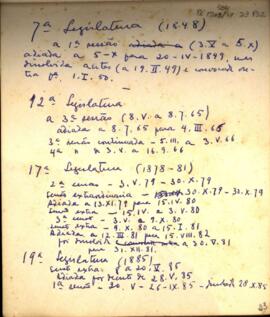 7ª Legislatura (1848)
a 1ª sessão (3.V a 5.X)
adiada a 5-X para 20-IV-1849, mas
dissolvida antes (a 19.II.49) e convocada
pª 1.I.50.
12ª Legislatura
a 3ª sessão (8.V. a 8.7.65)
adiada a 8.7.65 para 4.III.66
3ª sessão continuada - 5.III. a 3.V.66
4ª " " 3.V. a 16.9.66
17ª Legislatura (1878-81)
2ª sessão - 3.V.79 - 30.X.79
sessão extraordinária 30.X.79 - 31.X.79
Adiada a 13.XI.79 para 15.IV.80
Sessão extra - 15.IV. a 3.V.80
3ª sessão - 3.V. a 9.X.80
sessão extra - 9.X.80 a 15.I.81
Adiada a 12.III.81 para 15.VIII.82
por dissolvida a 30.VI.81
para 31.XII.81.
19ª Legislatura (1885)
Sessão extra: 8 a 20.V.85
Adiada por decreto de 28.V.85
1ª sessão - 20.V - 26-IX.85 - 28.X.85